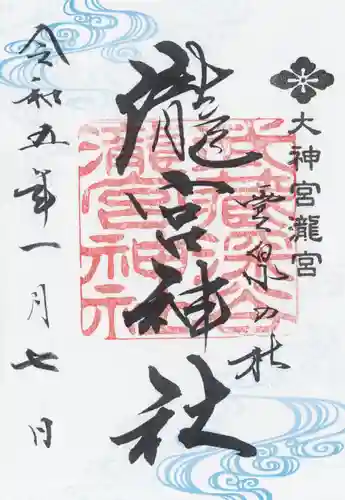 大神宮瀧宮
靈泉の杜
瀧宮神社
武蔵深谷
瀧宮神社
令和五年一月七日